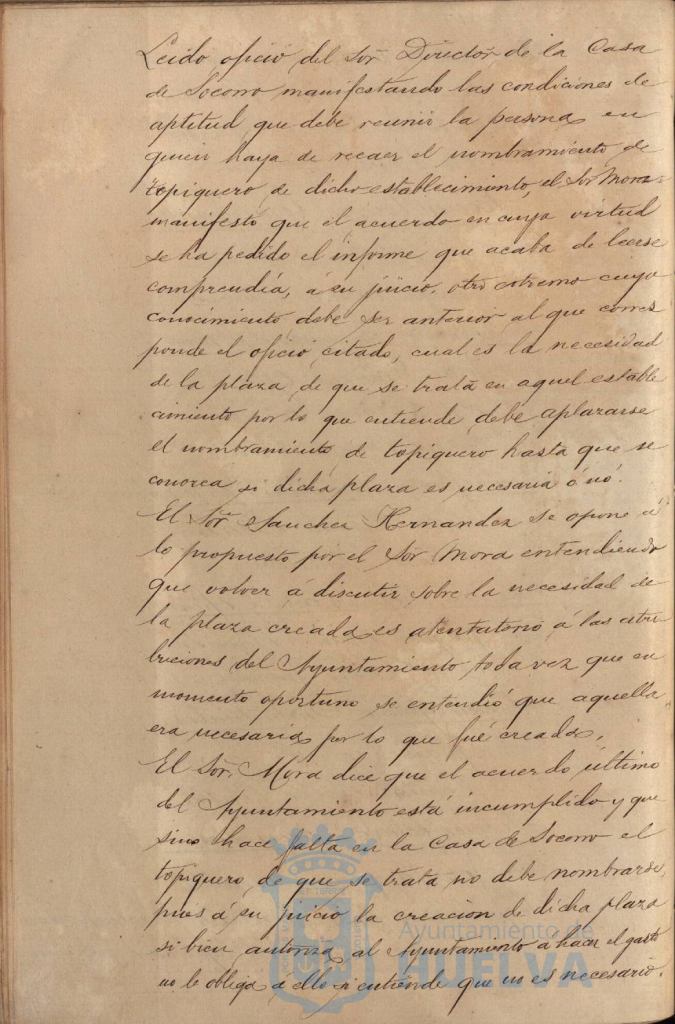 Leido oficio del Sor Director de la Casa
de Socorro manifestando las condiciones de
aptitud que debe reunir la persona en
quien haya de recaer el nombramiento de
topiquero de dicho establecimiento, el Sor Mora
manifestó que el acuerdo en cuya virtud
se ha pedido el informe que acaba de leerse
comprendia, á su juicio, otro estremo cuyo
conocimiento debe ser anterior al que corres
ponde el oficio citado, cual es la necesidad
de la plaza de que se trata en aquel estable
cimiento por lo que entiende debe aplazarse
el nombramiento de topiquero hasta que se
conozca si dicha plaza es necesaria ó nó.
El Sor Sanchez Hernandez se opone á
lo propuesto por el Sor Mora entendiendo
que volver á discutir sobre la necesidad de
la plaza creada es atentatorio á las atri
buciones del Ayuntamiento toda vez que en
momento oportuno se entendió que aquella
era necesaria por lo que fué creada.
El Sor Mora dice que el acuerdo último
del Ayuntamiento está incumplido y que
sino hace falta en la Casa de Socorro el
topiquero de que se trata no debe nombrarse,
pues á su juicio la creacion de dicha plaza
si bien autoriza al Ayuntamiento á hacer el gasto
no le obliga á ello si entiende que no es necesario.
Ayuntamiento de
HUELVA